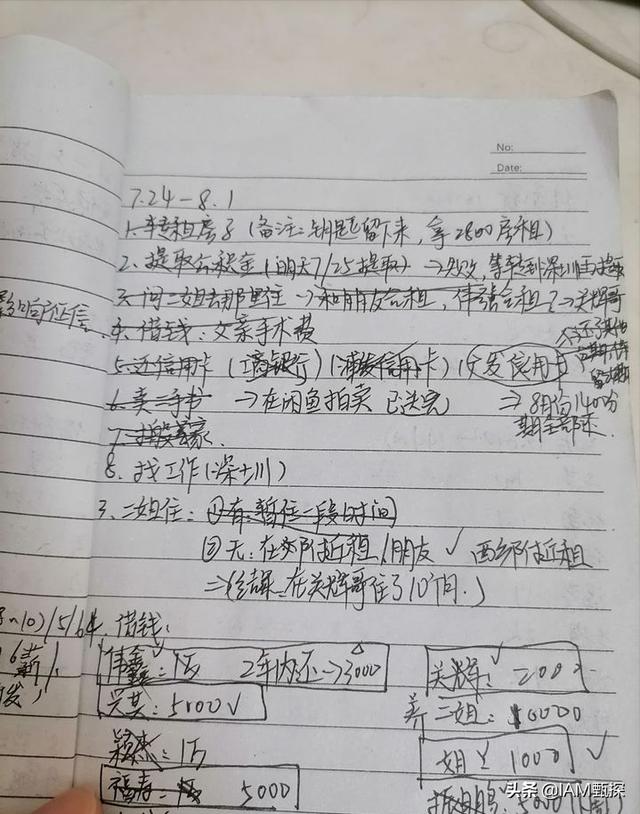 No:
Date:
7.24-8.1
1.转租房子(备注:钥匙留下来,拿2800房租)
2.提取公积金(明天7/25提取)→失败,等到深圳再提取
3.问二姐去那里住→和朋友合租,伟鑫合租?→关辉哥
影响征信
4.借钱:父亲手术费
5.还信用卡(工商银行)(浦发信用卡)(广发信用卡)
6.卖二手书 →在闲鱼拍卖 已送完
⇒8月份
7.搬家.
8.找工作(深圳)
3.二姐住:①有:暂住一段时间
②无:在附近租/朋友√ 附近租
⇒(结果:在关辉哥住了10个月.)
借钱:
伟鑫:1万 2年内还→3000
关辉:2000
兴其:5000√
二姐:10000
1万
姐 1000 √
福寿: 5000
5000
头条 @IAM甄探